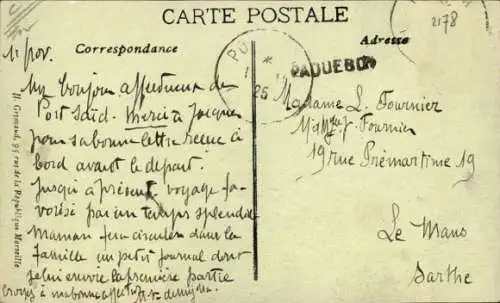 CARTE POSTALE
Correspondance
Adresse
2178
PAQUEBOT
25
1 Nov.
Un bonjour affectueux de
Port Saïd. Merci à Jacques
pour sa bonne lettre reçue à
bord avant le départ.
Jusqu'à présent voyage fa-
vorisé par un temps splendide
maman fera circuler dans la
famille un petit journal dont
je lui envoie la première partie
Croyez à ma bonne affection
Madame L. Fournier
Fournier
19 rue Prémartine 19
Le Mans
Sarthe
H. Grimaud, 95 rue de la République Marseille